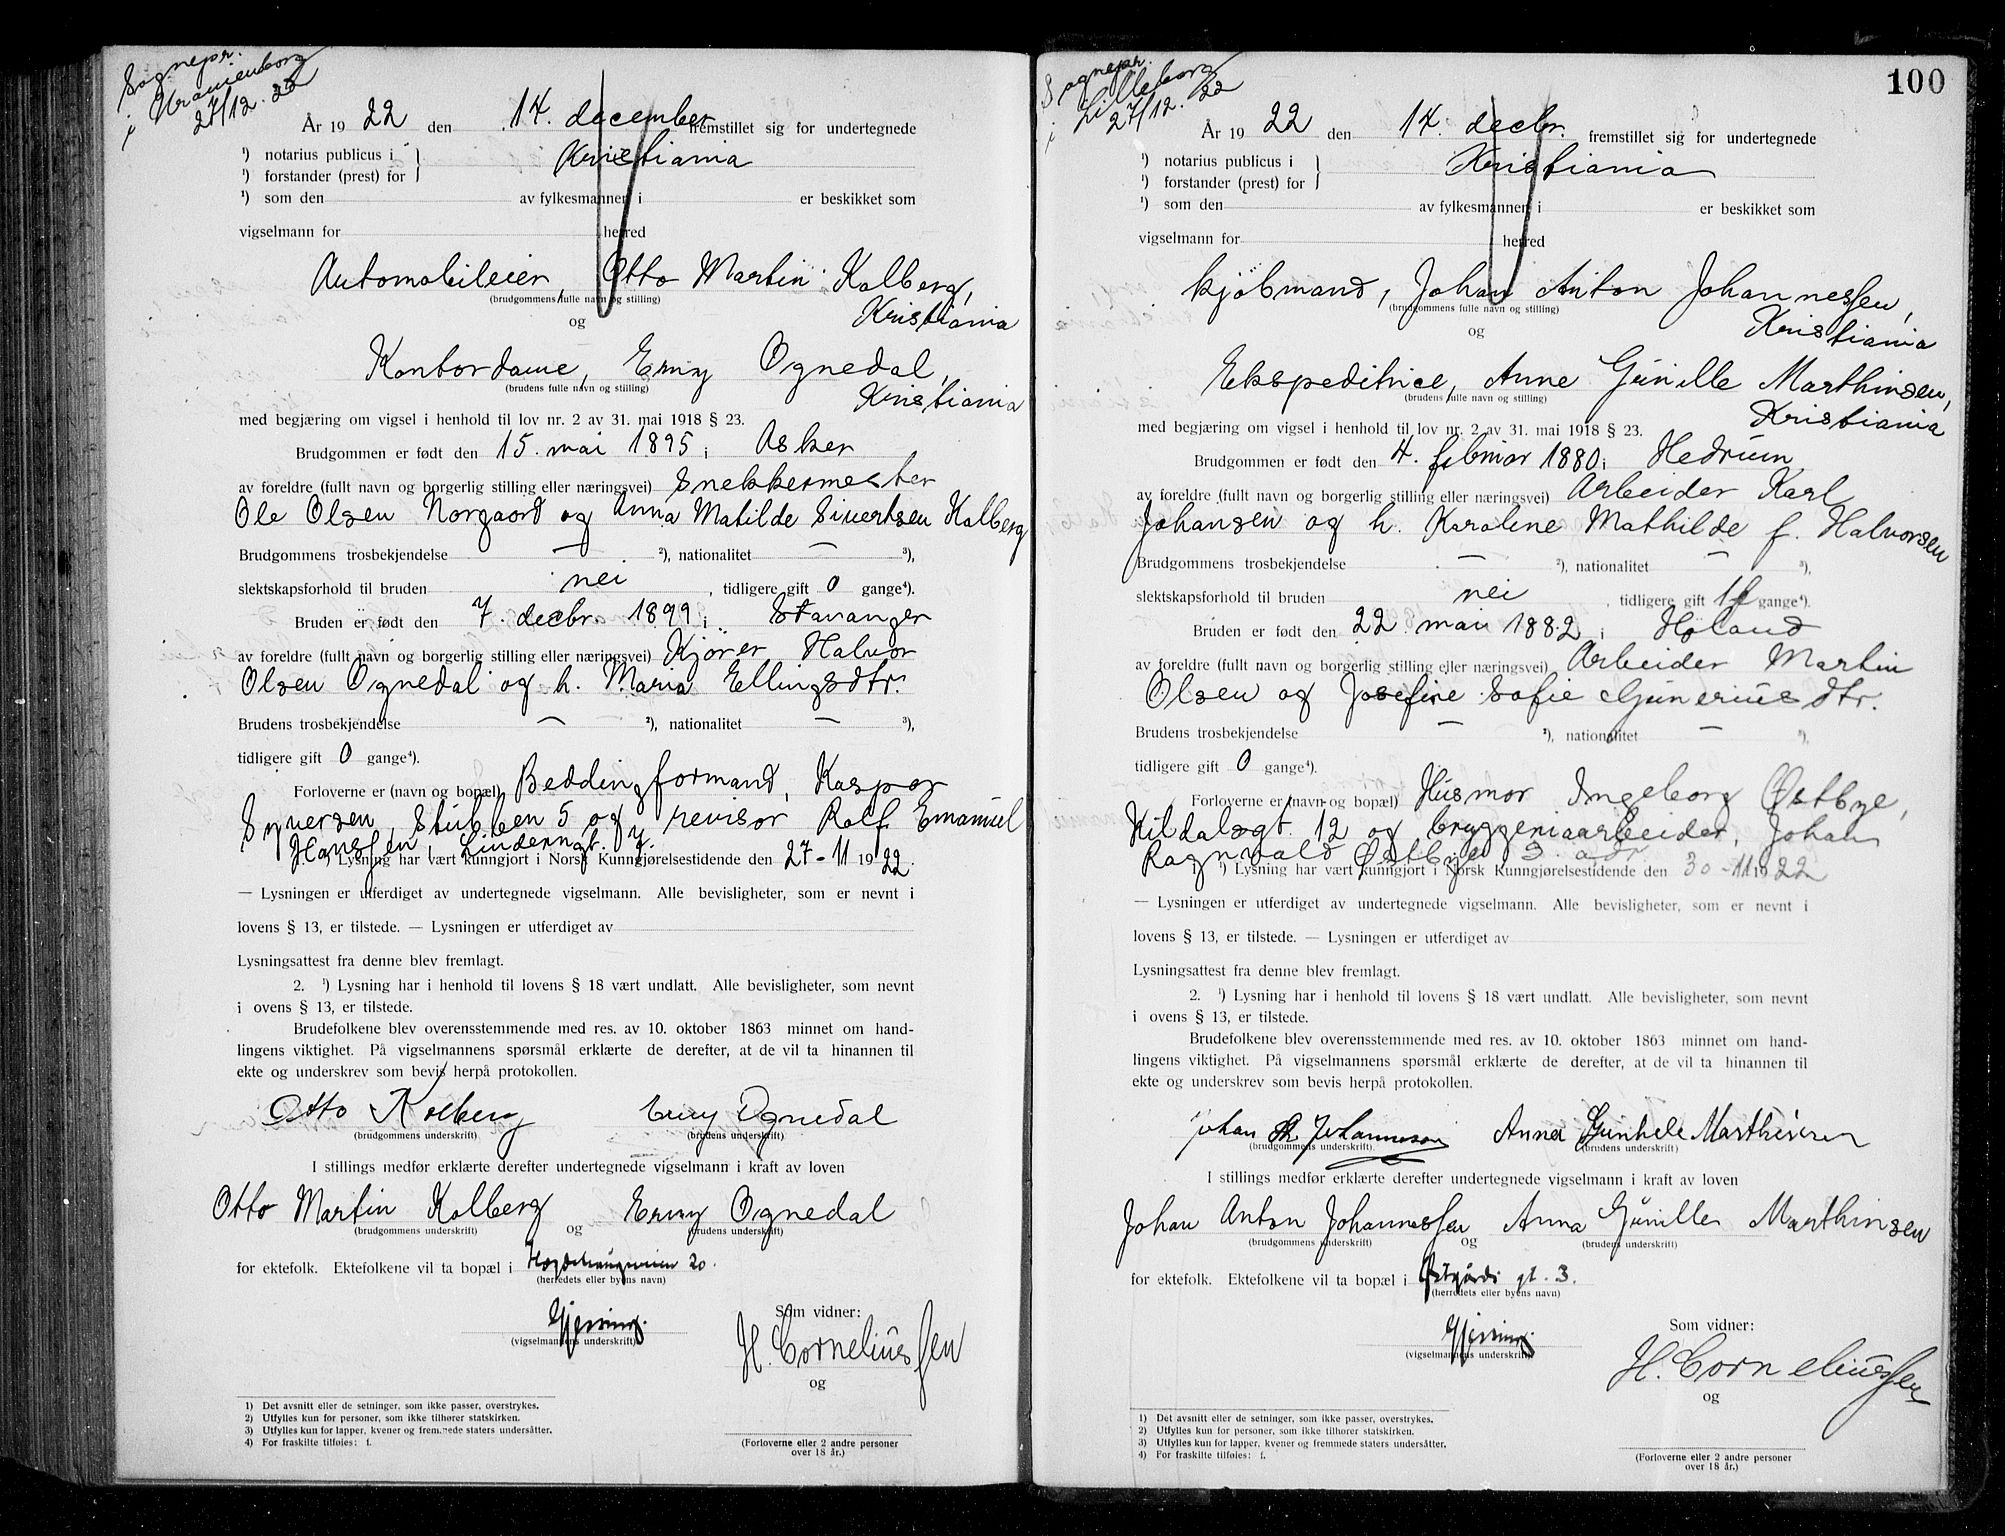 Sognepr.
i Uranienborg
27/12. 22
År 19 22 den 14. december fremstillet sig for undertegnede
¹) notarius publicus i
¹) forstander (prest) for
Kristiania
¹) som den av fylkesmannen i er beskikket som
vigselmann for herred
Automobileier, Otto Martin Kolberg,
(brudgommens fulle navn og stilling)
Kristiania
og
Kontordame, Erny Ognedal,
(brudens fulle navn og stilling)
Kristiania
med begjæring om vigsel i henhold til lov nr. 2 av 31. mai 1918 § 23.
Brudgommen er født den 15. mai 1895 i Asker
av foreldre (fullt navn og borgerlig stilling eller næringsvei) Snekkermester
Ole Olsen Norgaard og Anna Matilde Sivertsen Kolberg
Brudgommens trosbekjendelse — ²), nationalitet — ³),
slektskapsforhold til bruden nei, tidligere gift 0 gange⁴).
Bruden er født den 7. decbr. 1899 i Stavanger
av foreldre (fullt navn og borgerlig stilling eller næringsvei) Kjører Halvor
Olsen Ognedal og h. Maria Ellingsdtr.
Brudens trosbekjendelse — ²), nationalitet — ³),
tidligere gift 0 gange⁴).
Forloverne er (navn og bopæl) Beddingformand, Kaspar
Syversen, Stubben 5 og revisor Rolf Emanuel
Hanssen, Linderngt. 7.
Lysning har vært kunngjort i Norsk Kunngjørelsestidende den 27-11 19 22.
— Lysningen er utferdiget av undertegnede vigselmann. Alle bevisligheter, som er nevnt i
lovens § 13, er tilstede. — Lysningen er utferdiget av
Lysningsattest fra denne blev fremlagt.
2. ¹) Lysning har i henhold til lovens § 18 vært undlatt. Alle bevisligheter, som nevnt
i ovens § 13, er tilstede.
Brudefolkene blev overensstemmende med res. av 10. oktober 1863 minnet om hand-
lingens viktighet. På vigselmannens spørsmål erklærte de derefter, at de vil ta hinannen til
ekte og underskrev som bevis herpå protokollen.
Otto Kolberg Erny Ognedal
(brudgommens underskrift) (brudens underskrift)
I stillings medfør erklærte derefter undertegnede vigselmann i kraft av loven
Otto Martin Kolberg og Erny Ognedal
(brudgommens underskrift) (brudens underskrift)
for ektefolk. Ektefolkene vil ta bopæl i Hegdehaugsveien 20.
(herredets eller byens navn)
Gjessing.
(vigselmannens underskrift)
Som vidner:
H. Corneliussen
og
1) Det avsnitt eller de setninger, som ikke passer, overstrykes.
2) Utfylles kun for personer, som ikke tilhører statskirken.
3) Utfylles kun for lapper, kvener og fremmede staters undersåtter.
4) For fraskilte tilføies: f.
(Forloverne eller 2 andre personer
over 18 år.)
100
Sognepr.
i Lilleborg
27/12. 22
År 19 22 den 14. decbr. fremstillet sig for undertegnede
¹) notarius publicus i
¹) forstander (prest) for
Kristiania
¹) som den av fylkesmannen i er beskikket som
vigselmann for herred
Kjøbmand, Johan Anton Johannessen,
(brudgommens fulle navn og stilling)
Kristiania
og
Ekspeditrice, Anne Gunille Marthinsen,
(brudens fulle navn og stilling)
Kristiania
med begjæring om vigsel i henhold til lov nr. 2 av 31. mai 1918 § 23.
Brudgommen er født den 4. februar 1880 i Hedrum
av foreldre (fullt navn og borgerlig stilling eller næringsvei) Arbeider Karl
Johansen og h. Karoline Mathilde f. Halvorsen
Brudgommens trosbekjendelse — ²), nationalitet — ³),
slektskapsforhold til bruden nei, tidligere gift 1 f gange⁴).
Bruden er født den 22. mai 1882 i Høland
av foreldre (fullt navn og borgerlig stilling eller næringsvei) Arbeider Martin
Olsen og Josefine Sofie Guneriusdtr.
Brudens trosbekjendelse — ²), nationalitet — ³),
tidligere gift 0 gange⁴).
Forloverne er (navn og bopæl) Husmor Ingeborg Østbye,
Kildalsgt. 12 og bryggeriarbeider, Johan
Ragnvald Østbye s. adr.
¹) Lysning har vært kunngjort i Norsk Kunngjørelsestidende den 30-11 19 22
— Lysningen er utferdiget av undertegnede vigselmann. Alle bevisligheter, som er nevnt i
lovens § 13, er tilstede. — Lysningen er utferdiget av
Lysningsattest fra denne blev fremlagt.
2. ¹) Lysning har i henhold til lovens § 18 vært undlatt. Alle bevisligheter, som nevnt
i ovens § 13, er tilstede.
Brudefolkene blev overensstemmende med res. av 10. oktober 1863 minnet om hand-
lingens viktighet. På vigselmannens spørsmål erklærte de derefter, at de vil ta hinannen til
ekte og underskrev som bevis herpå protokollen.
Johan A. Johannesen Anna Gunhele Marthinsen
(brudgommens underskrift) (brudens underskrift)
I stillings medfør erklærte derefter undertegnede vigselmann i kraft av loven
Johan Anton Johannessen og Anna Gunille Marthinsen
(brudgommens underskrift) (brudens underskrift)
for ektefolk. Ektefolkene vil ta bopæl i Østgårds gt. 3.
(herredets eller byens navn)
Gjessing
(vigselmannens underskrift)
Som vidner:
H. Corneliussen
og
1) Det avsnitt eller de setninger, som ikke passer, overstrykes.
2) Utfylles kun for personer, som ikke tilhører statskirken.
3) Utfylles kun for lapper, kvener og fremmede staters undersåtter.
4) For fraskilte tilføies: f.
(Forloverne eller 2 andre personer
over 18 år.)